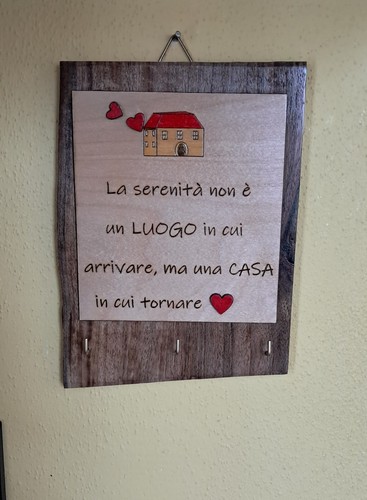 La serenità non è
un LUOGO in cui
arrivare, ma una CASA
in cui tornare